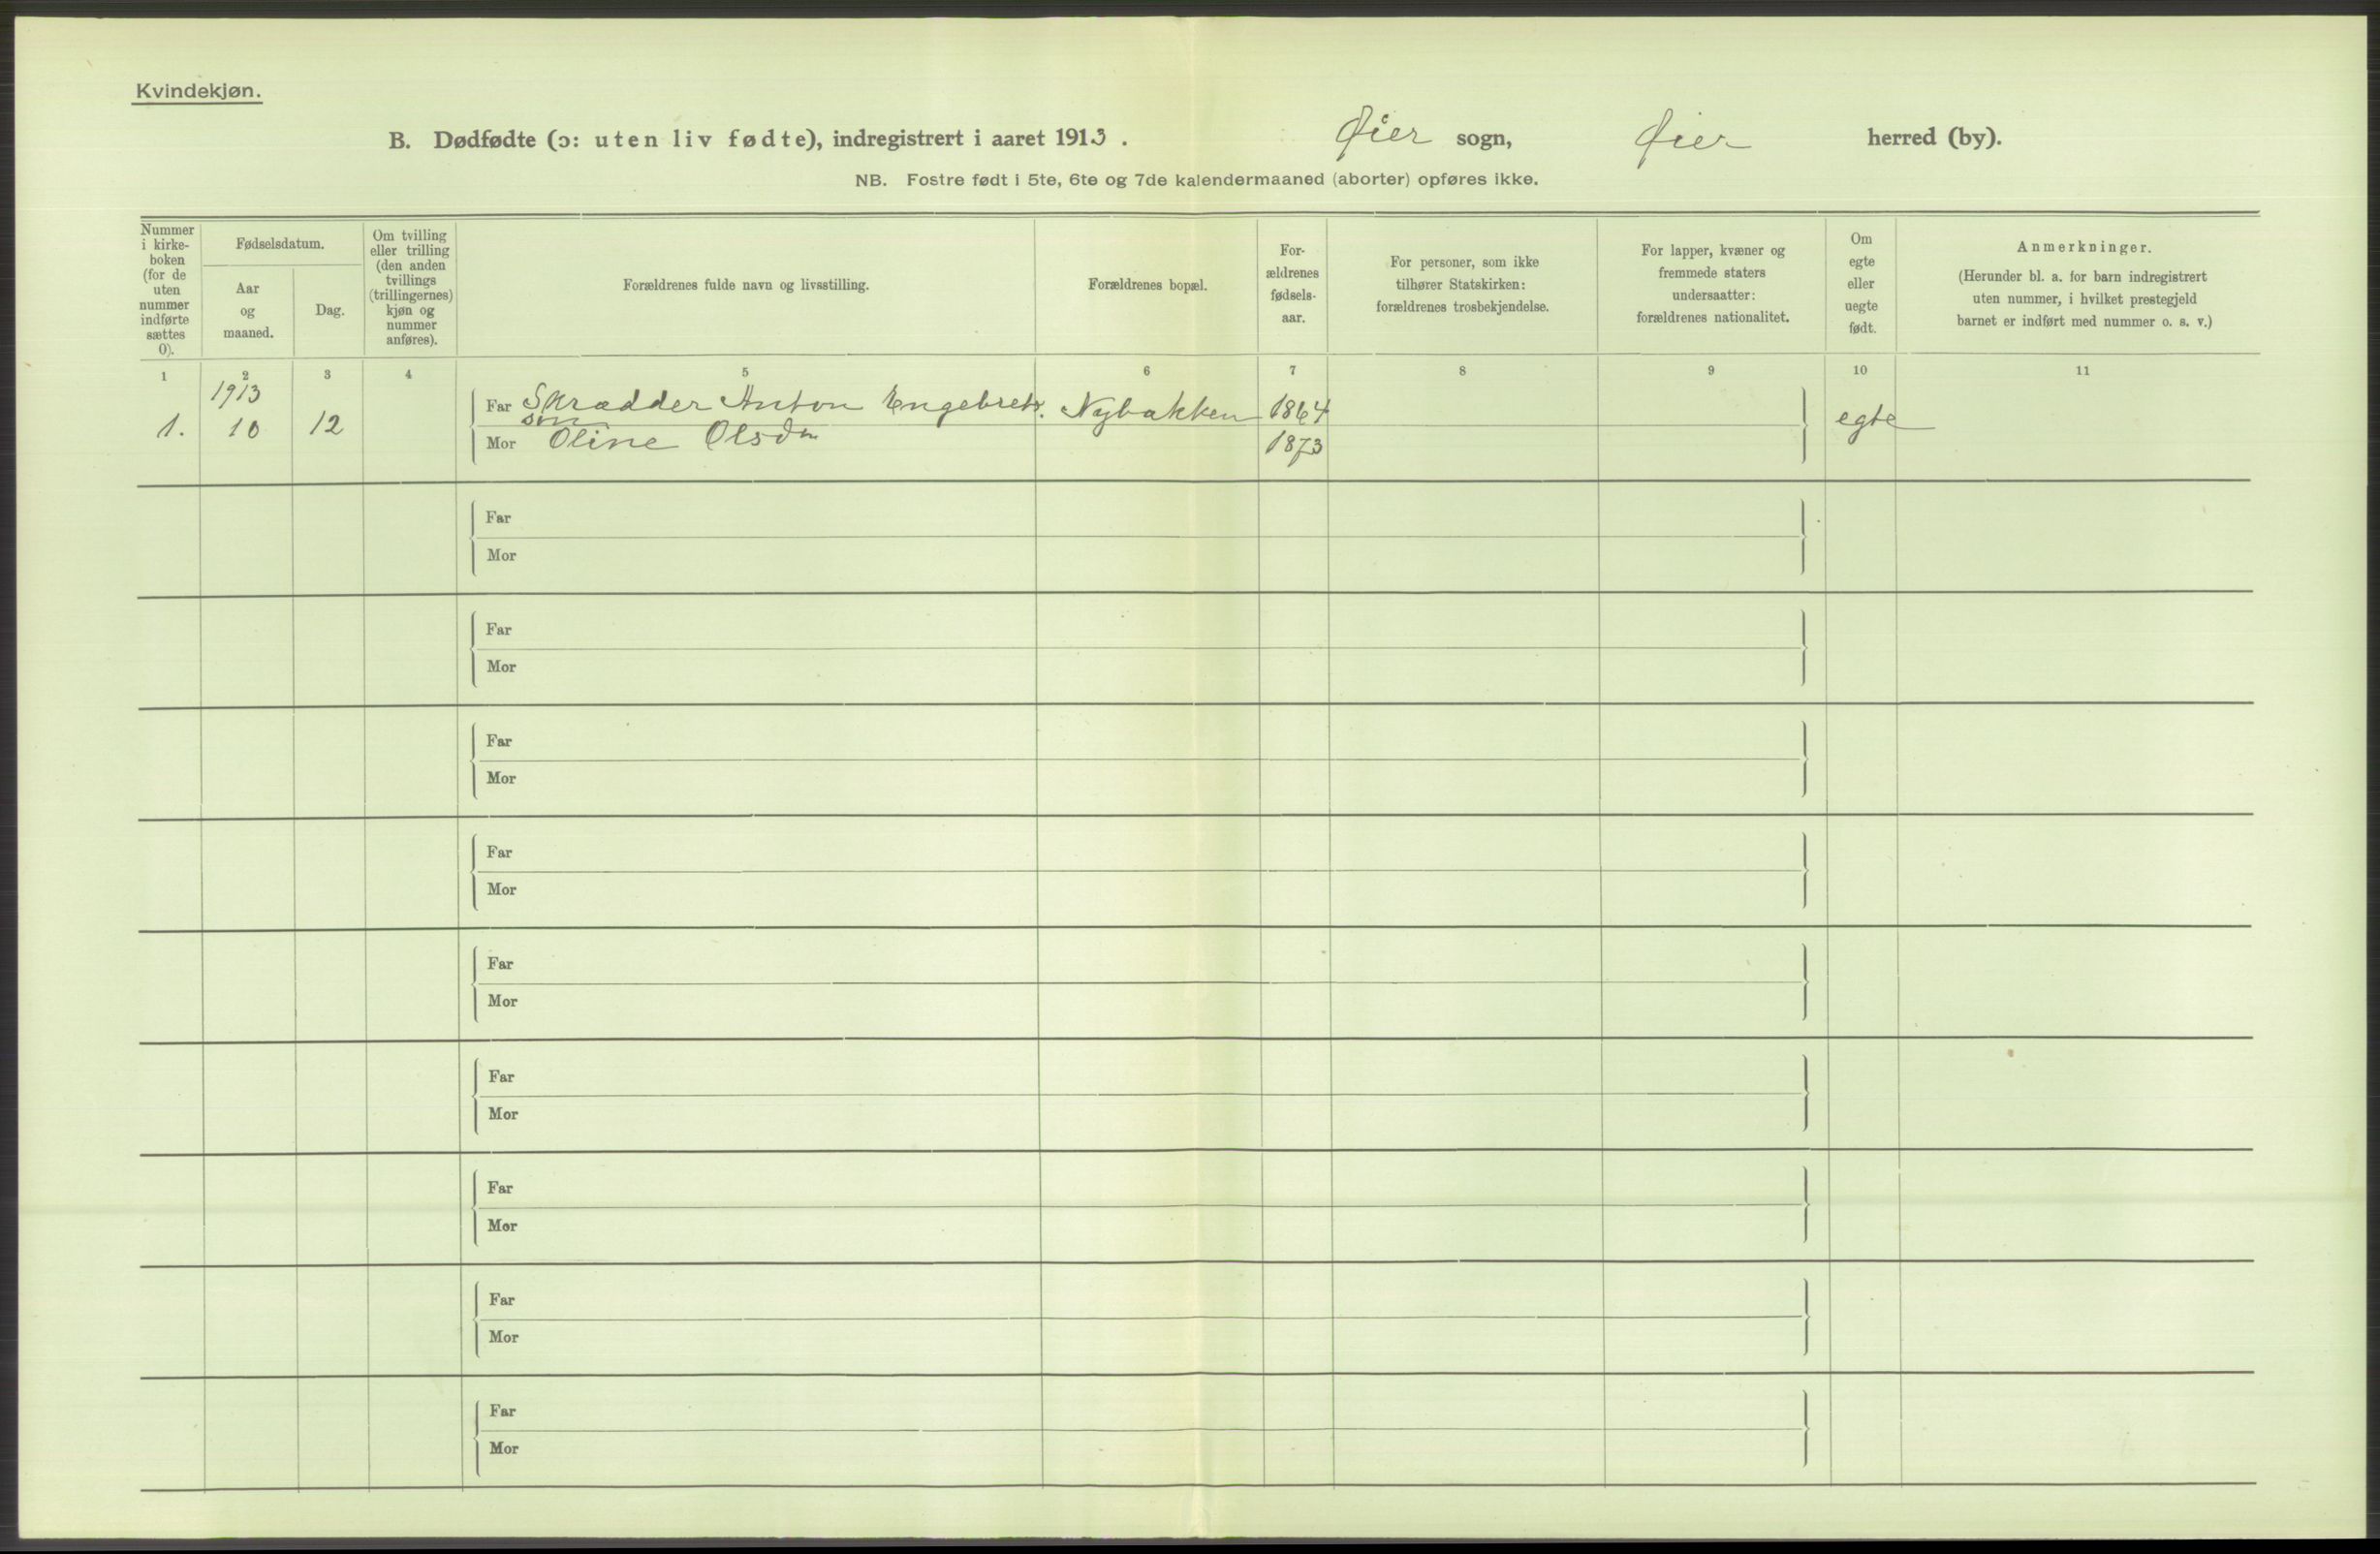 Kvindekjøn.
B. Dødfødte (ɔ: uten liv fødte), indregistrert i aaret 1913 . Øier sogn, Øier herred (by).
NB. Fostre født i 5te, 6te og 7de kalendermaaned (aborter) opføres ikke.
Nummer
i kirke-
boken
(for de
uten
nummer
indførte
sættes
0).
Fødselsdatum.
Aar
og
maaned.
Dag.
Om tvilling
eller trilling
(den anden
tvillings
(trillingernes)
kjøn og
nummer
anføres).
Forældrenes fulde navn og livsstilling.
Forældrenes bopæl.
For-
ældrenes
fødsels-
aar.
For personer, som ikke
tilhører Statskirken:
forældrenes trosbekjendelse.
For lapper, kvæner og
fremmede staters
undersaatter:
forældrenes nationalitet.
Om
egte
eller
uegte
født.
Anmerkninger.
(Herunder bl. a. for barn indregistrert
uten nummer, i hvilket prestegjeld
barnet er indført med nummer o. s. v.)
1 2 3 4 5 6 7 8 9 10 11
1913
1. 10 12
Far Skrædder Anton Engebrets. Nybakken 1864 egte
søn
Mor Oline Olsdn 1873
Far
Mor
Far
Mor
Far
Mor
Far
Mor
Far
Mor
Far
Mor
Far
Mor
Far
Mor
Far
Mor